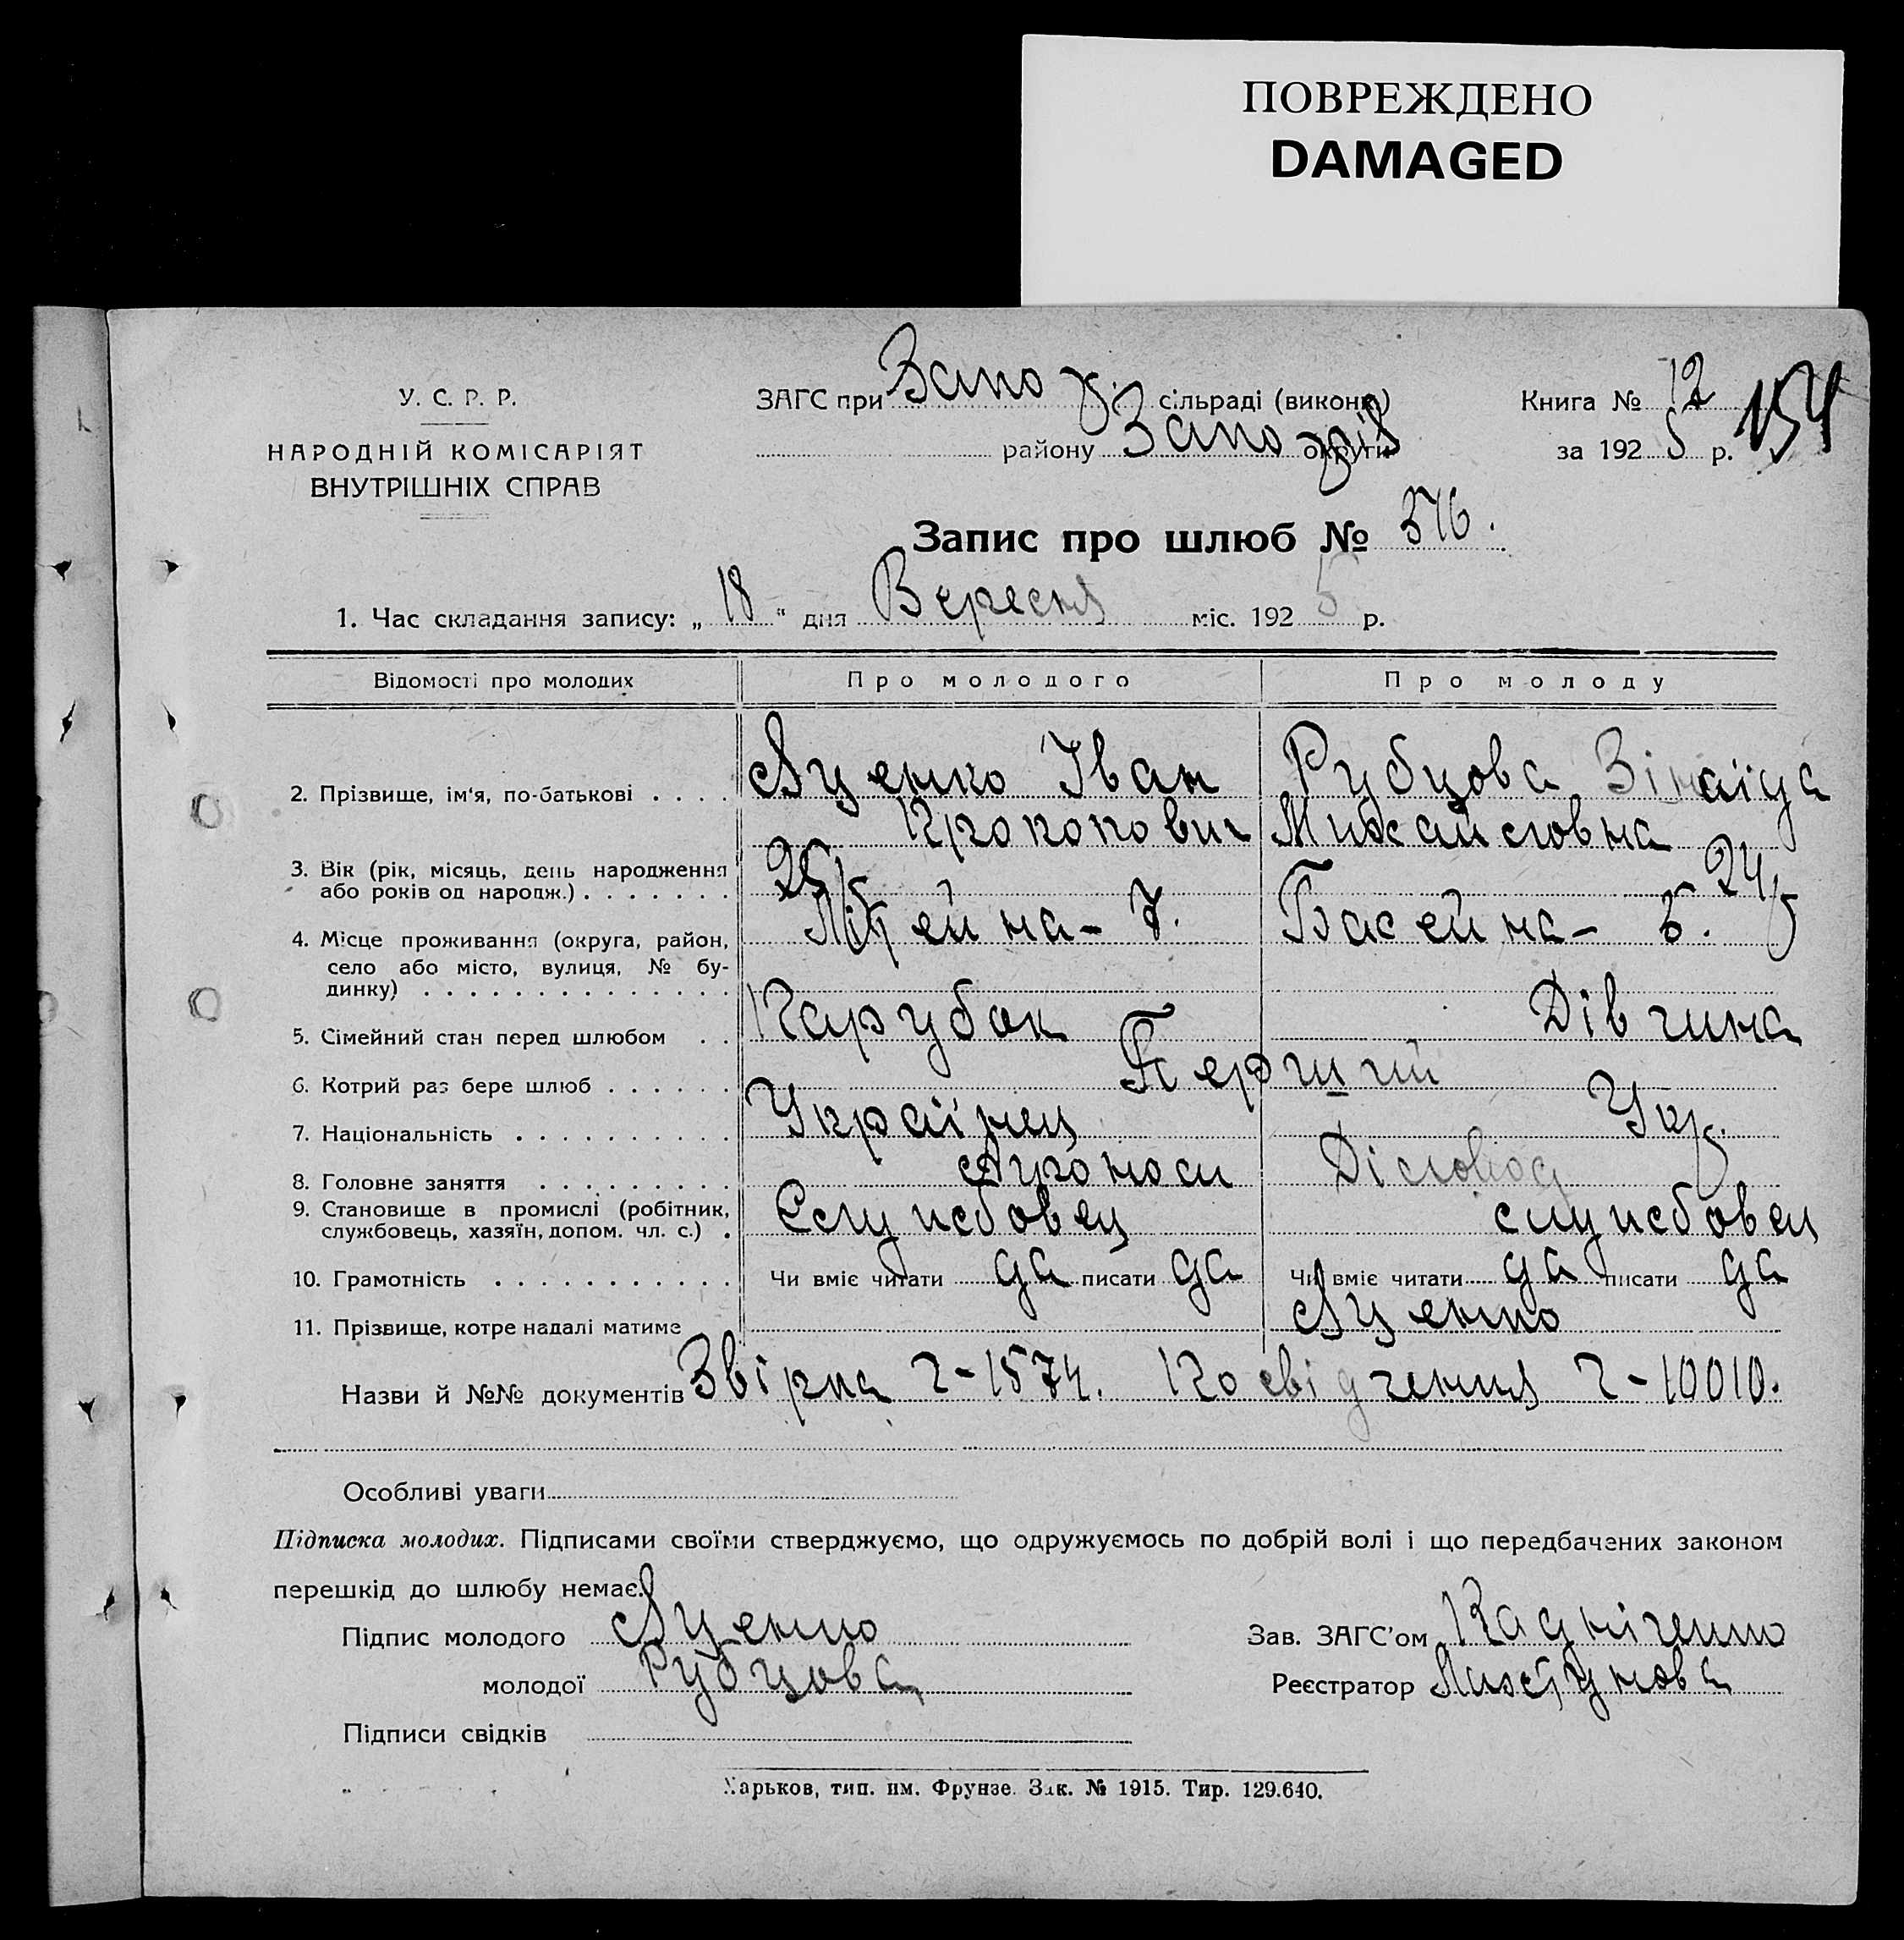 ПОВРЕЖДЕНО
DAMAGED
У. С. Р. Р.
НАРОДНІЙ КОМІСАРІЯТ
ВНУТРІШНІХ СПРАВ
ЗАГС при Запо сільраді (викон.)
району Запо округи
Книга № 12 154
за 192 5 р.
Запис про шлюб № 376.
1. Час складання запису: „ 18 “ дня Вересня міс. 192 5 р.
Відомості про молодих Про молодого Про молоду
2. Прізвище, ім‘я, по-батькові . . . . Луценко Іван Рубцова Зінаїда
Прокопович Михайловна
3. Вік (рік, місяць, день народження
або років од народж.) . . . . . . . 25 24
4. Місце проживання (округа, район,
село або місто, вулиця, № бу-
динку) . . . . . . . . . . . . . . Літейна - 7. Басейна - 5.
5. Сімейний стан перед шлюбом . . Парубок Дівчина
6. Котрий раз бере шлюб . . . . . . Перший
7. Національність . . . . . . . . . . Українец Укр.
8. Головне заняття . . . . . . . . . Агроном Діловод
9. Становище в промислі (робітник,
службовець, хазяїн, допом. чл. с.) . Службовец службовец
10. Грамотність . . . . . . . . . . . Чи вміє читати да писати да Чи вміє читати да писати да
11. Прізвище, котре надалі матиме Луценко
Назви й №№ документів Звірка ч-1574. Посвідчення ч-10010.
Особливі уваги
Підписка молодих. Підписами своїми стверджуємо, що одружуємось по добрій волі і що передбачених законом
перешкід до шлюбу немає.
Підпис молодого Луценко Зав. ЗАГС’ом
молодої Рубцова Реєстратор
Підписи свідків
Харьков, тип. им. Фрунзе. Зак. № 1915. Тир. 129.640.